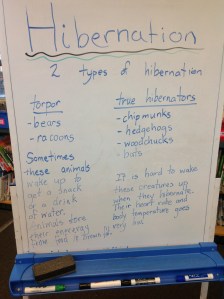 Hibernation
2 types of hibernation
torpor
- bears
- racoons
Sometimes
these animals
wake up to
get a snack
or a drink
of water.
animals store
their energy
true hibernators
- chipmunks
- hedgehogs
- woodchucks
- bats
It is hard to wake
these creatures up
when they hibernate.
Their heart rate and
body temperature goes
very low.